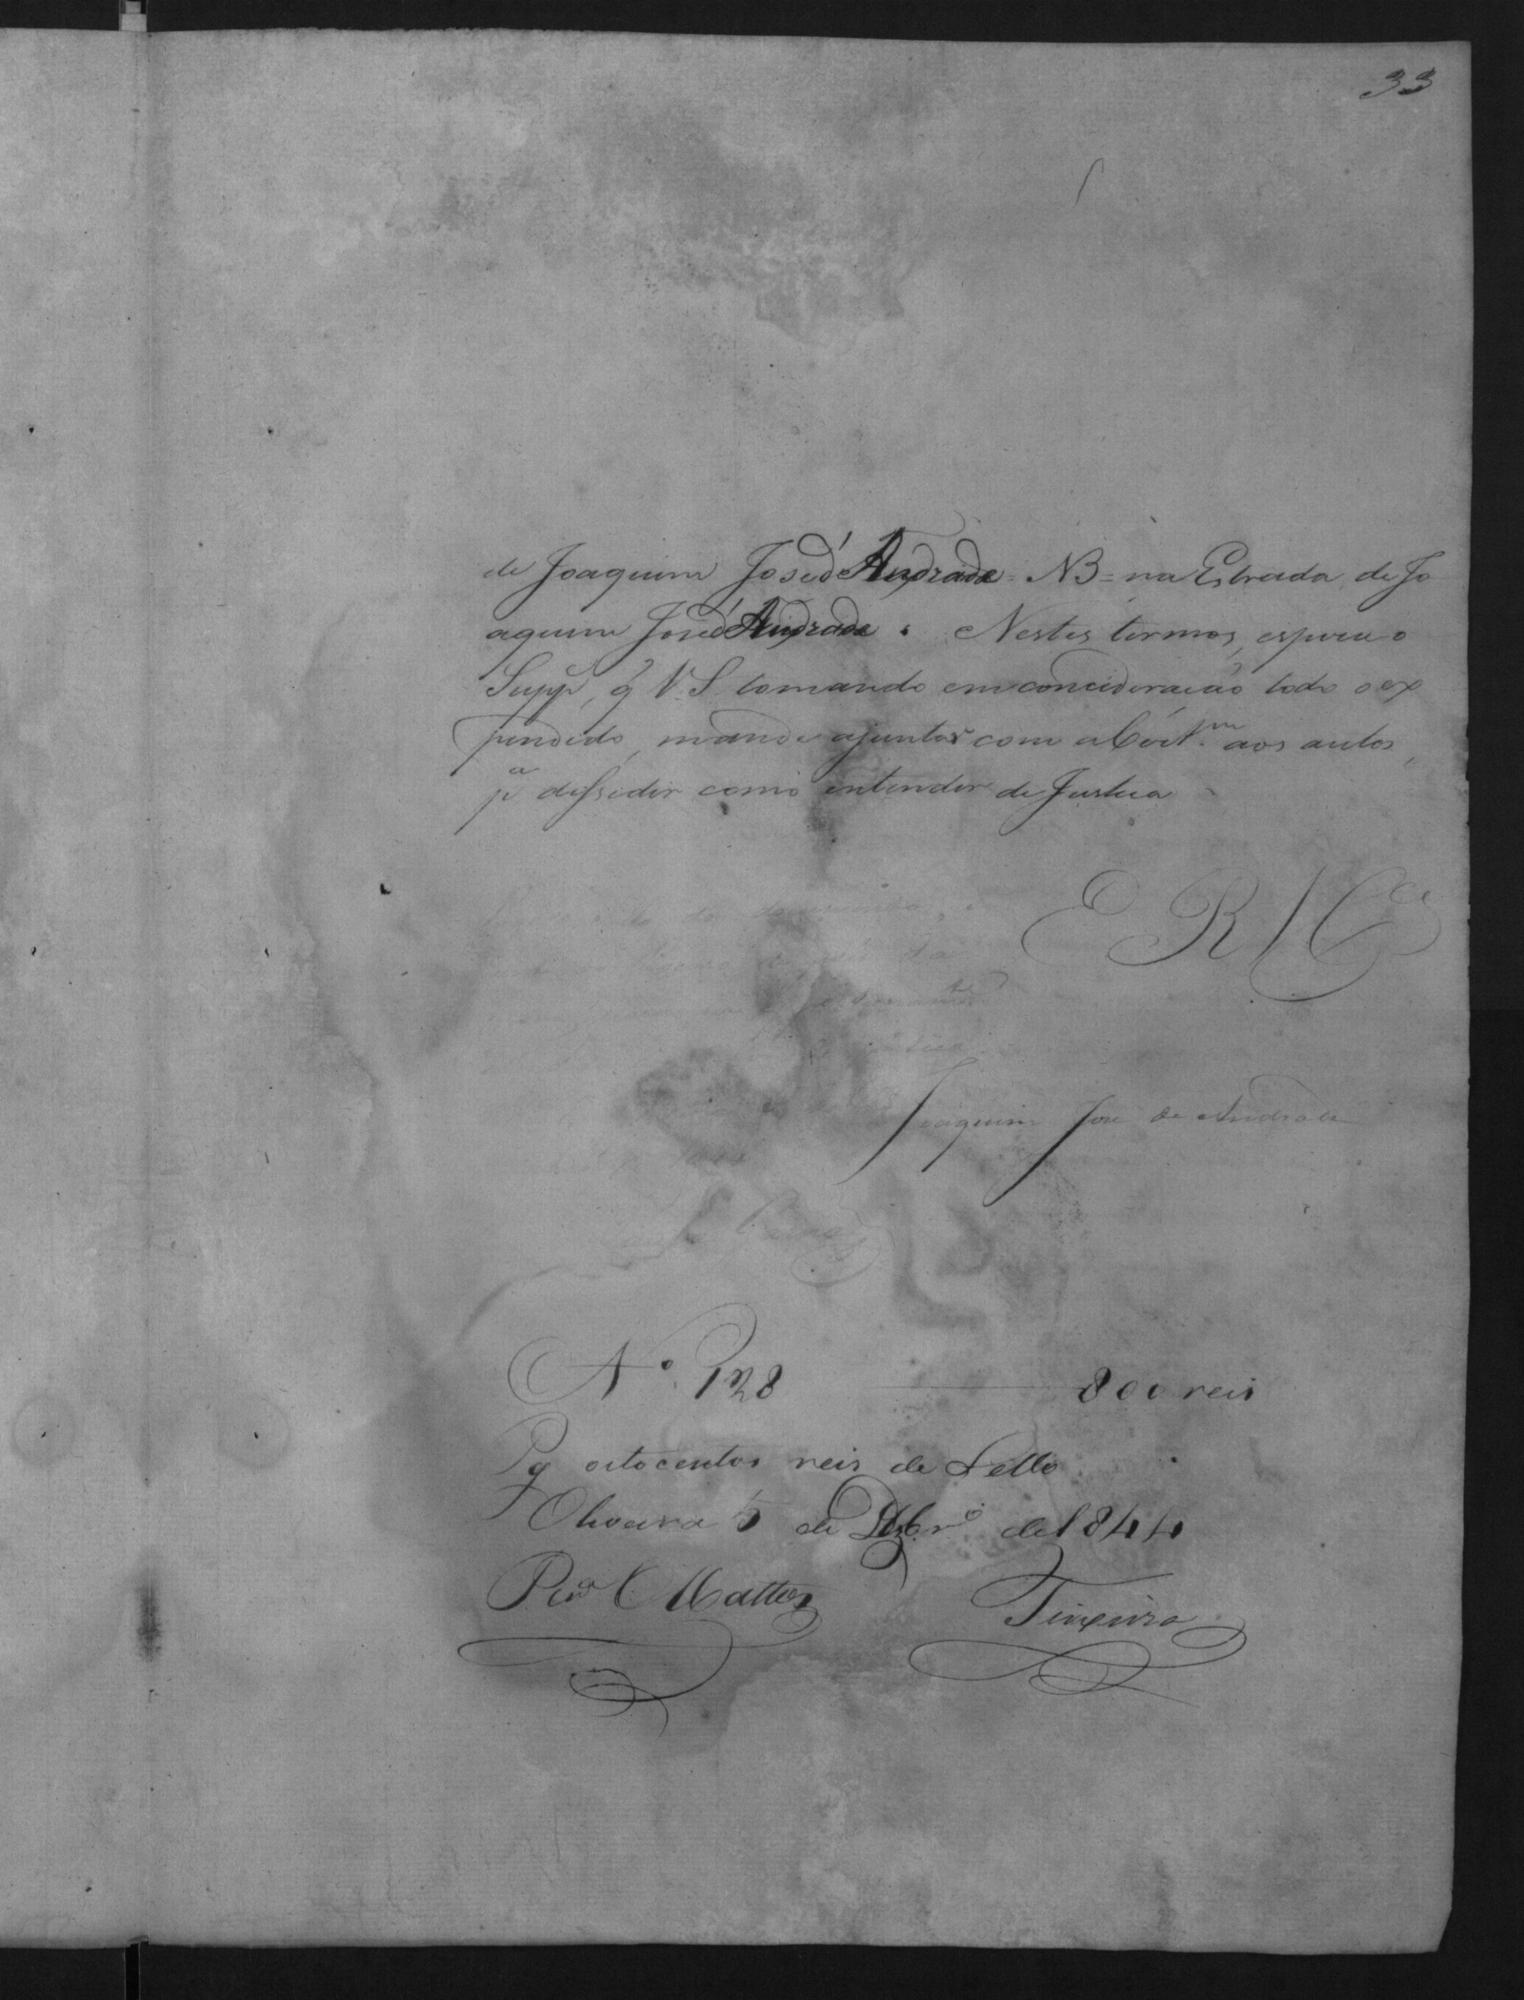 33
de Joaquim José d'Andrade = NB = na Estrada de Jo
aquim José d'Andrade. Nestes termos, espera o
Suppe, q V. S. tomando em concideração todo o ex
pendido, mande ajuntar com a Cert.m aos autos,
pa dessedir como entender de Justica
E R Mce
Joaquim José de Andrade
No 128 800 reis
Pg oitocentos reis de Sello
Oliveira 5 de Dezbro de 1844
Mattos Teixeira